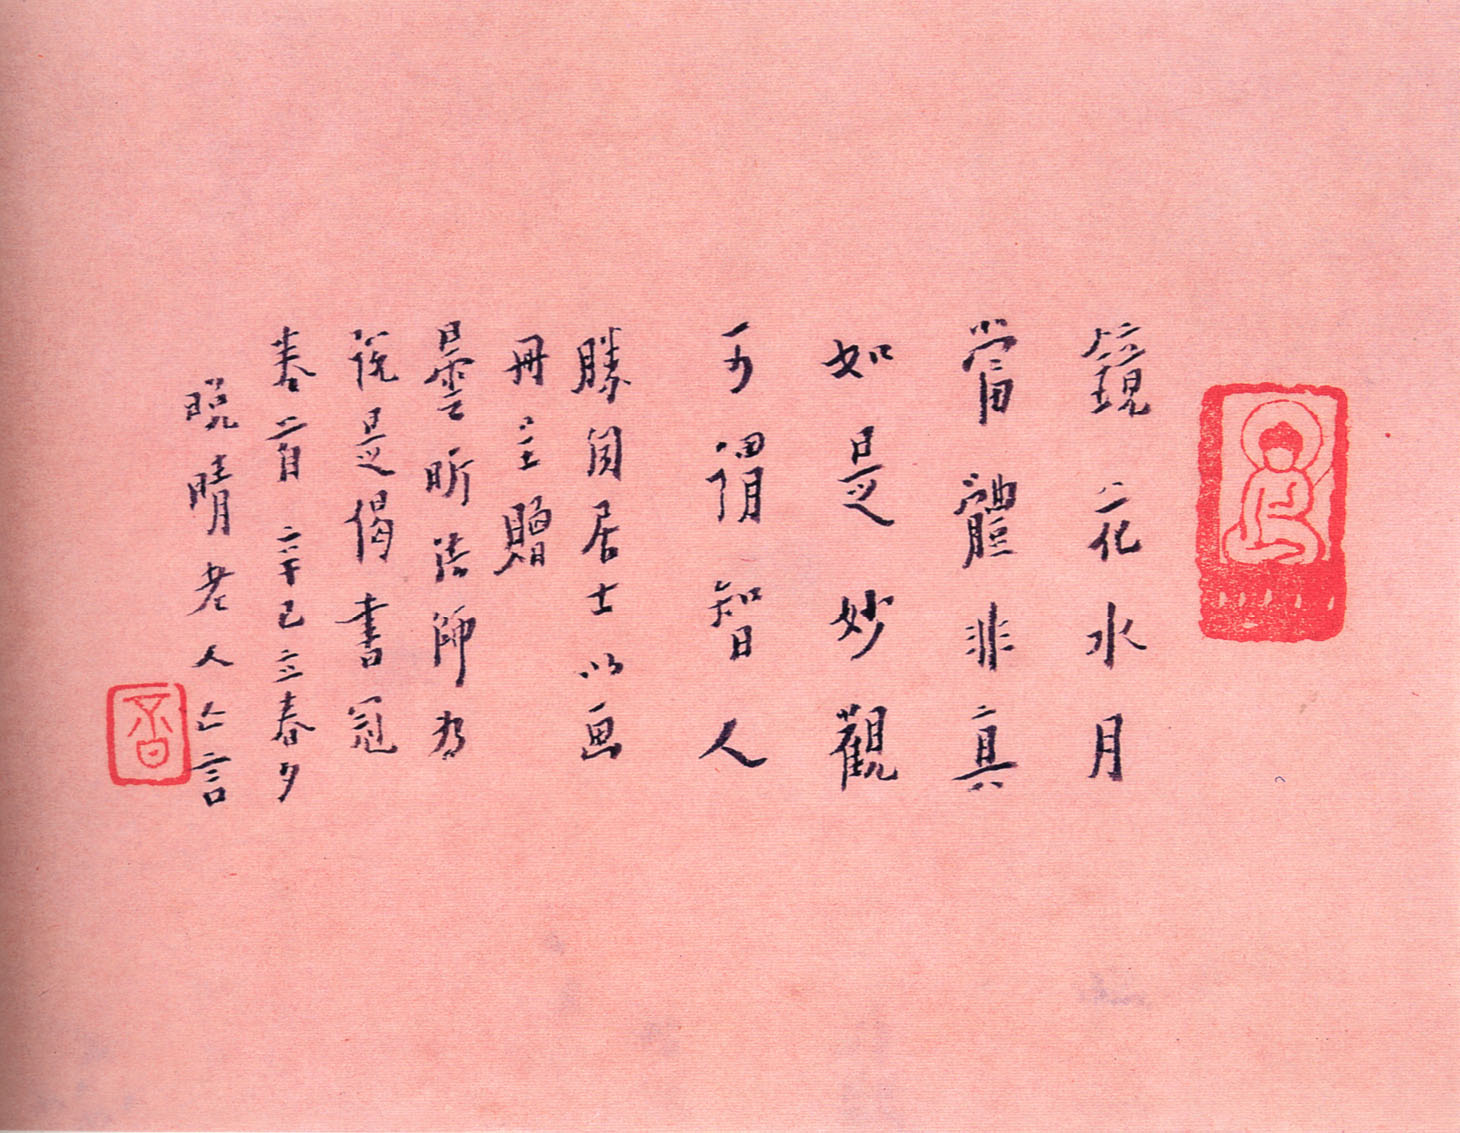 鏡花水月
當體非真
如是妙觀
可謂智人
勝閒居士以画
冊主贈
曇昕法師為
說是偈書冠
卷首 辛巳立春夕
晚晴老人亡言